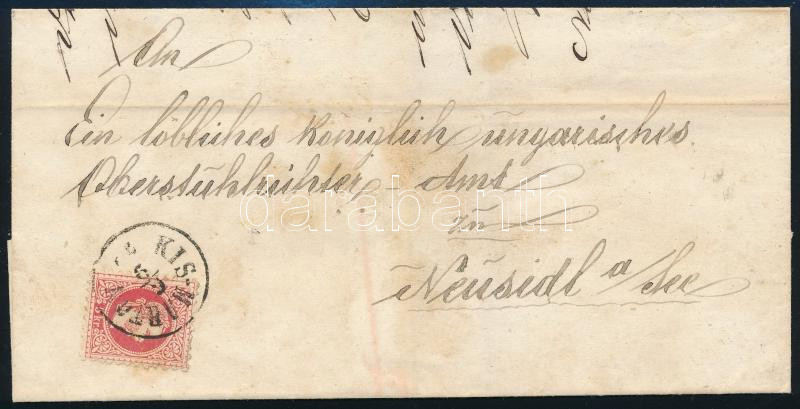 An
Ein löbliches königlich ungarisches
Oberstuhlrichter-Amt
zu
Neusidl a/See
KIS-MARTON
5 kr.
darabanth